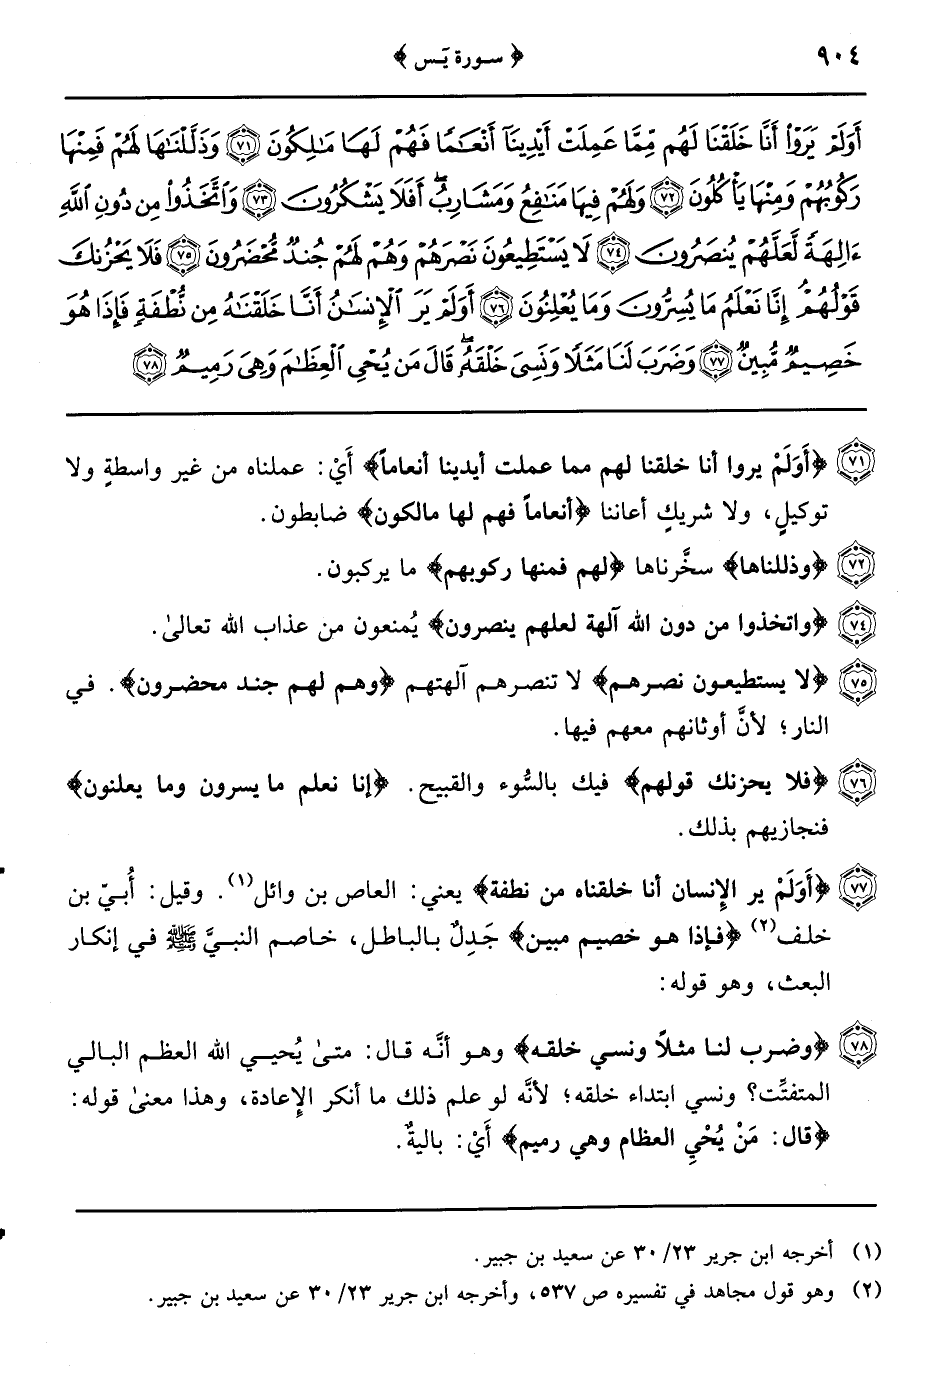 ٩٠٤ ﴿ سورة يَس ﴾
أَوَلَمْ يَرَوْا۟ أَنَّا خَلَقْنَا لَهُم مِّمَّا عَمِلَتْ أَيْدِينَآ أَنْعَٰمًا فَهُمْ لَهَا مَٰلِكُونَ ﴿٧١﴾ وَذَلَّلْنَٰهَا لَهُمْ فَمِنْهَا
رَكُوبُهُمْ وَمِنْهَا يَأْكُلُونَ ﴿٧٢﴾ وَلَهُمْ فِيهَا مَنَٰفِعُ وَمَشَارِبُ ۖ أَفَلَا يَشْكُرُونَ ﴿٧٣﴾ وَٱتَّخَذُوا۟ مِن دُونِ ٱللَّهِ
ءَالِهَةً لَّعَلَّهُمْ يُنصَرُونَ ﴿٧٤﴾ لَا يَسْتَطِيعُونَ نَصْرَهُمْ وَهُمْ لَهُمْ جُندٌ مُّحْضَرُونَ ﴿٧٥﴾ فَلَا يَحْزُنكَ
قَوْلُهُمْ ۘ إِنَّا نَعْلَمُ مَا يُسِرُّونَ وَمَا يُعْلِنُونَ ﴿٧٦﴾ أَوَلَمْ يَرَ ٱلْإِنسَٰنُ أَنَّا خَلَقْنَٰهُ مِن نُّطْفَةٍ فَإِذَا هُوَ
خَصِيمٌ مُّبِينٌ ﴿٧٧﴾ وَضَرَبَ لَنَا مَثَلًا وَنَسِىَ خَلْقَهُۥ ۖ قَالَ مَن يُحْىِ ٱلْعِظَٰمَ وَهِىَ رَمِيمٌ ﴿٧٨﴾
٧١ ﴿أَوَلَمْ يروا أنا خلقنا لهم مما عملت أيدينا أنعاماً﴾ أَيْ: عملناه من غير واسطةٍ ولا
توكيلٍ، ولا شريكٍ أعاننا ﴿أنعاماً فهم لها مالكون﴾ ضابطون.
٧٢ ﴿وذللناها﴾ سخَّرناها ﴿لهم فمنها ركوبهم﴾ ما يركبون.
٧٤ ﴿واتخذوا من دون الله آلهة لعلهم ينصرون﴾ يُمنعون من عذاب الله تعالىٰ.
٧٥ ﴿لا يستطيعون نصرهم﴾ لا تنصرهم آلهتهم ﴿وهم لهم جند محضرون﴾. في
النار؛ لأنَّ أوثانهم معهم فيها.
٧٦ ﴿فلا يحزنك قولهم﴾ فيك بالسُّوء والقبيح. ﴿إنا نعلم ما يسرون وما يعلنون﴾
فنجازيهم بذلك.
٧٧ ﴿أَوَلَمْ ير الإِنسان أنا خلقناه من نطفة﴾ يعني: العاص بن وائل(١). وقيل: أُبيّ بن
خلف(٢) ﴿فإذا هو خصيم مبين﴾ جَدِلٌ بالباطل، خاصم النبيَّ ﷺ في إنكار
البعث، وهو قوله:
٧٨ ﴿وضرب لنا مثلاً ونسي خلقه﴾ وهو أنَّه قال: متىٰ يُحيي الله العظم البالي
المتفتِّت؟ ونسي ابتداء خلقه؛ لأنَّه لو علم ذلك ما أنكر الإِعادة، وهذا معنىٰ قوله:
﴿قال: مَنْ يُحْيِ العظام وهي رميم﴾ أَيْ: باليةٌ.
(١) أخرجه ابن جرير ٢٣/ ٣٠ عن سعيد بن جبير.
(٢) وهو قول مجاهد في تفسيره ص ٥٣٧، وأخرجه ابن جرير ٢٣/ ٣٠ عن سعيد بن جبير.